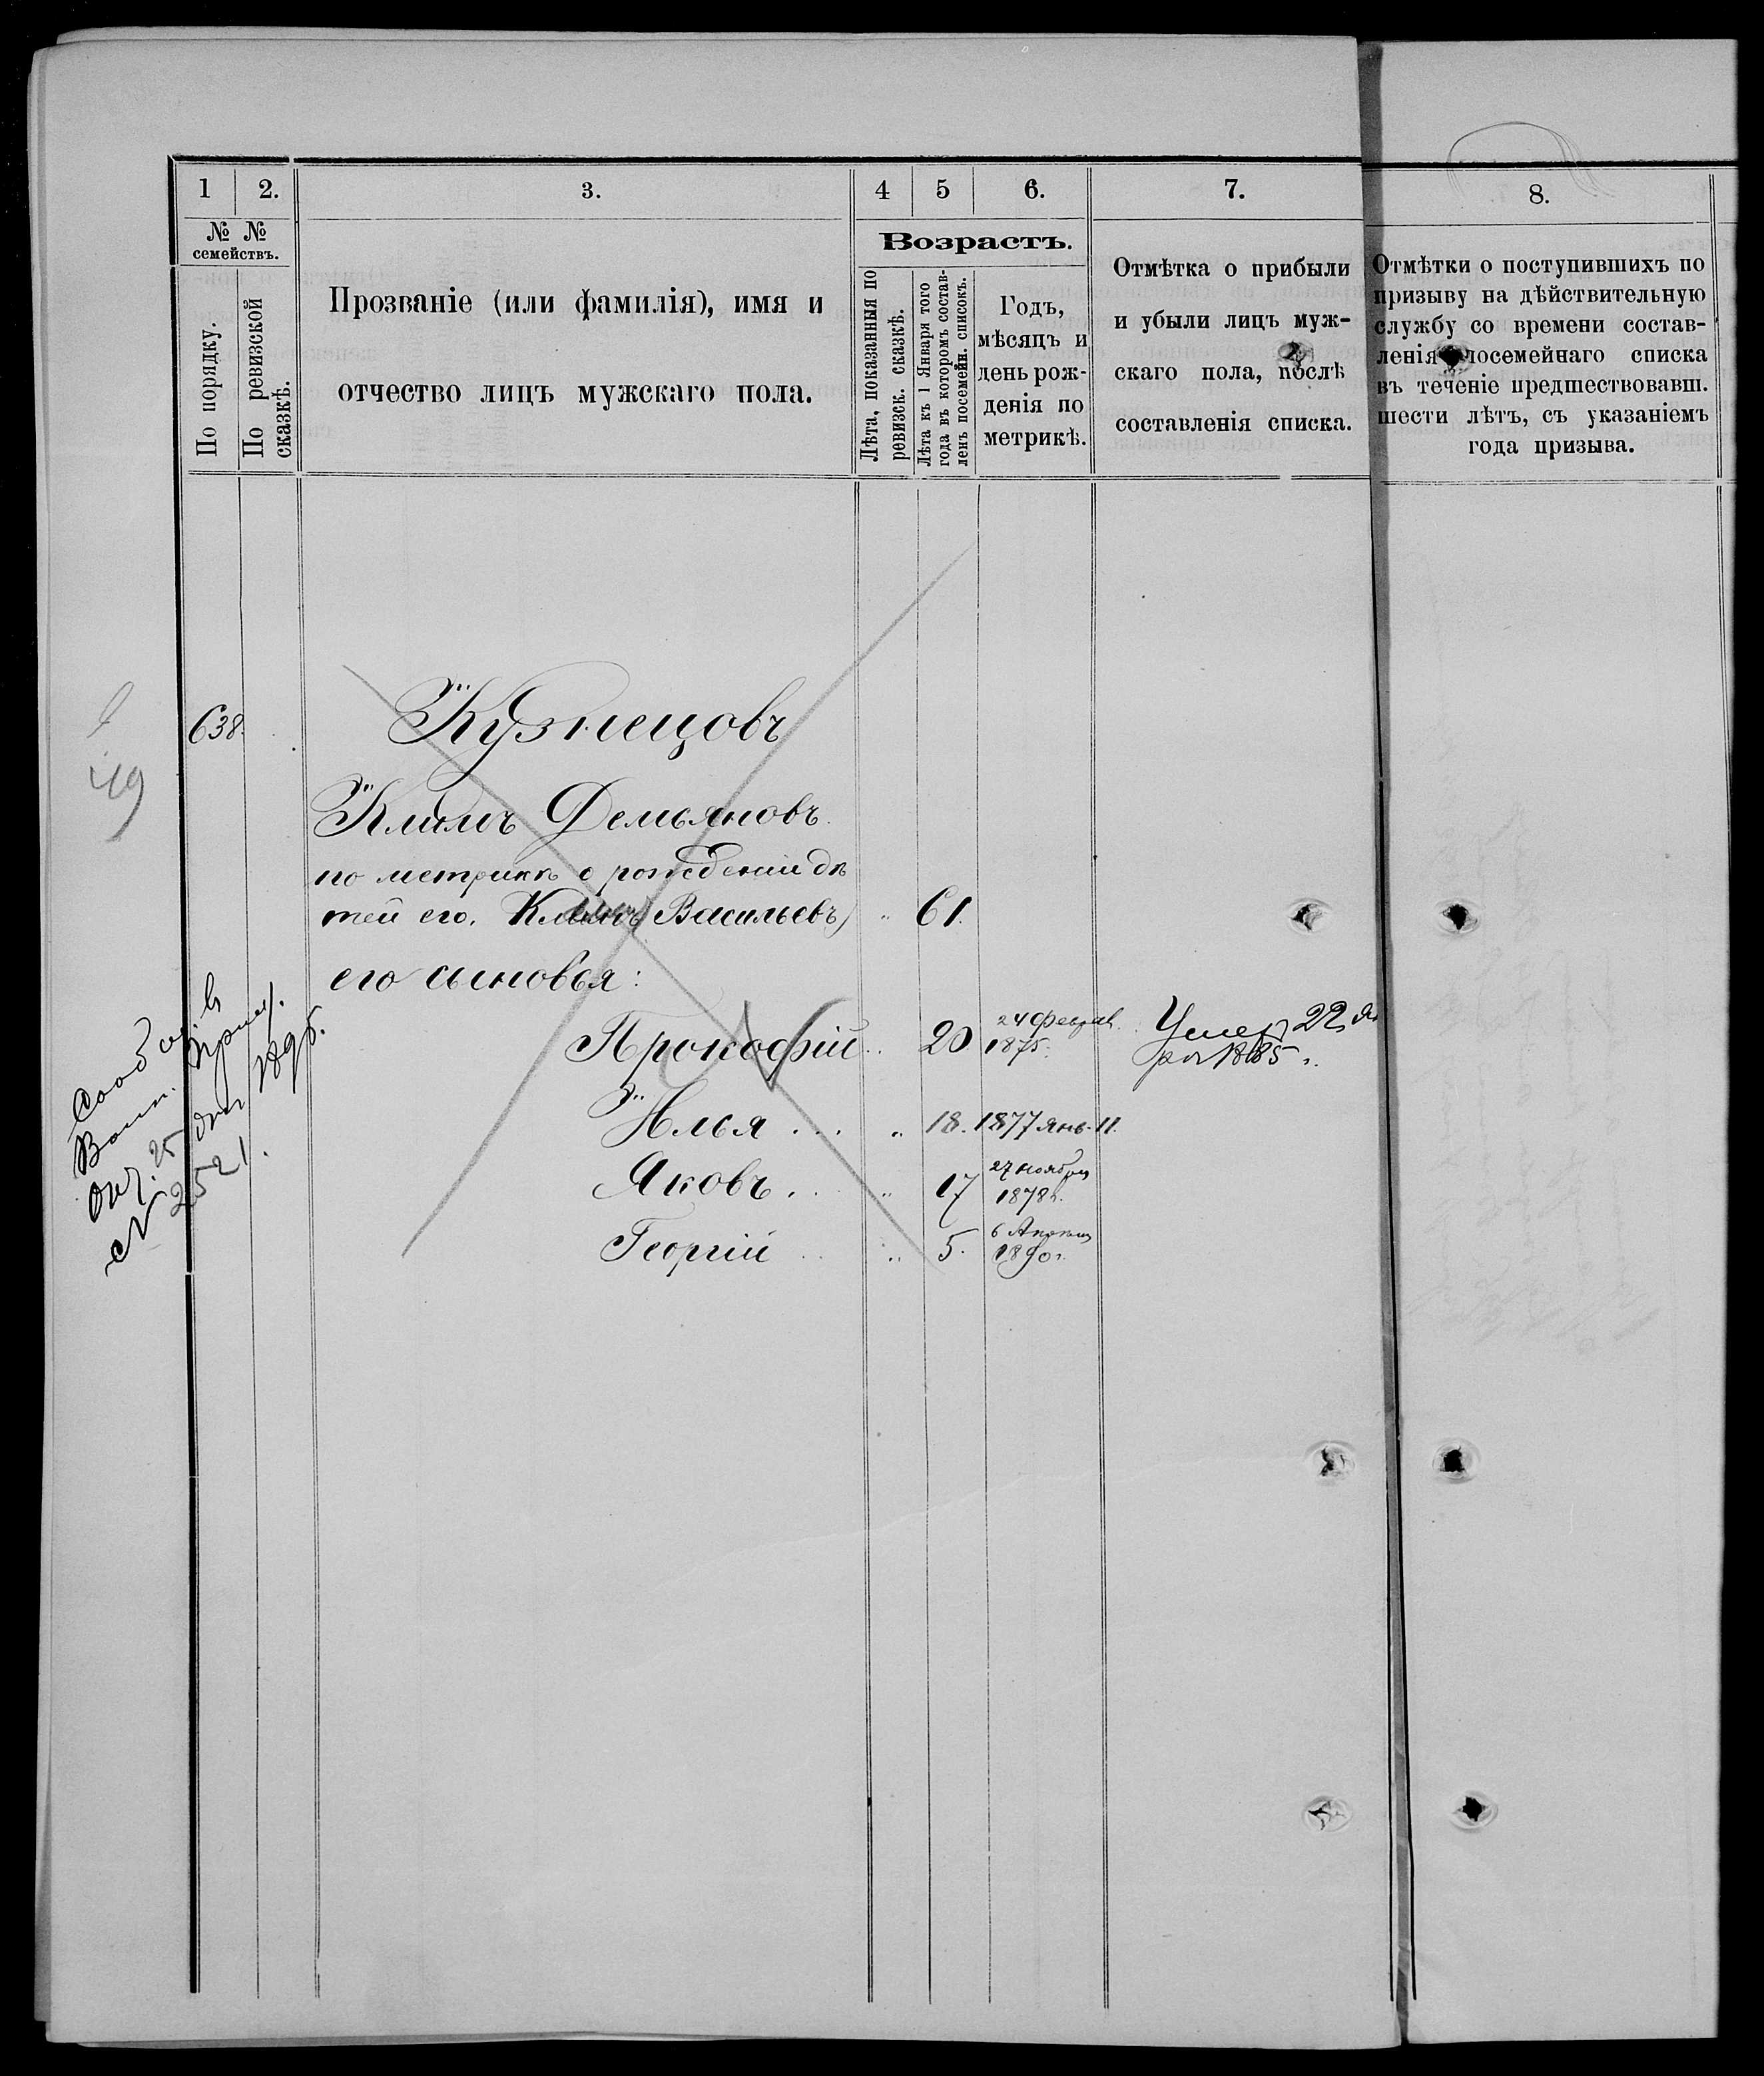 1
2.
3.
4
5
6.
7.
8.
№ №
семействъ.
По порядку.
По ревизской
сказкѣ.
Прозваніе (или фамилія), имя и
отчество лицъ мужскаго пола.
Возрастъ.
Лѣта, показанныя по
ревизск. сказкѣ.
Лѣта къ 1 Января того
года въ которомъ состав-
ленъ посемейн. списокъ.
Годъ,
мѣсяцъ и
день рож-
денія по
метрикѣ.
Отмѣтка о прибыли
и убыли лицъ муж-
скаго пола, послѣ
составленія списка.
Отмѣтки о поступившихъ по
призыву на дѣйствительную
службу со времени состав-
ленія посемейнаго списка
въ теченіе предшествовавш.
шести лѣтъ, съ указаніемъ
года призыва.
49
638.
Кузнецовъ
Климъ Демьяновъ.
по метрикѣ о рожденіи дѣ
тей его. Климъ Васильевъ) " 61.
его сыновья:
Прокофій .. 20 24 Феврал. 1875. Умер 22 Ян
ря 1885 г.
Илья ... " 18. 1877 янв. 11.
Яковъ. .. " 17 27 ноября 1878 г.
Георгій .. " 5. 6 Апрѣля 1890 г.
Сооб въ
Воин. Прис.
отъ 25 1895.
№ 2521.